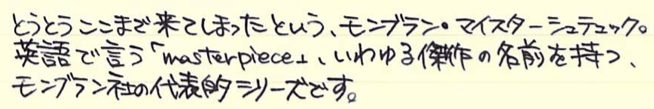 とうとうここまで来てしまったという、モンブラン・マイスターシュテュック。
英語で言う「masterpiece」、いわゆる傑作の名前を持つ、
モンブラン社の代表的シリーズです。